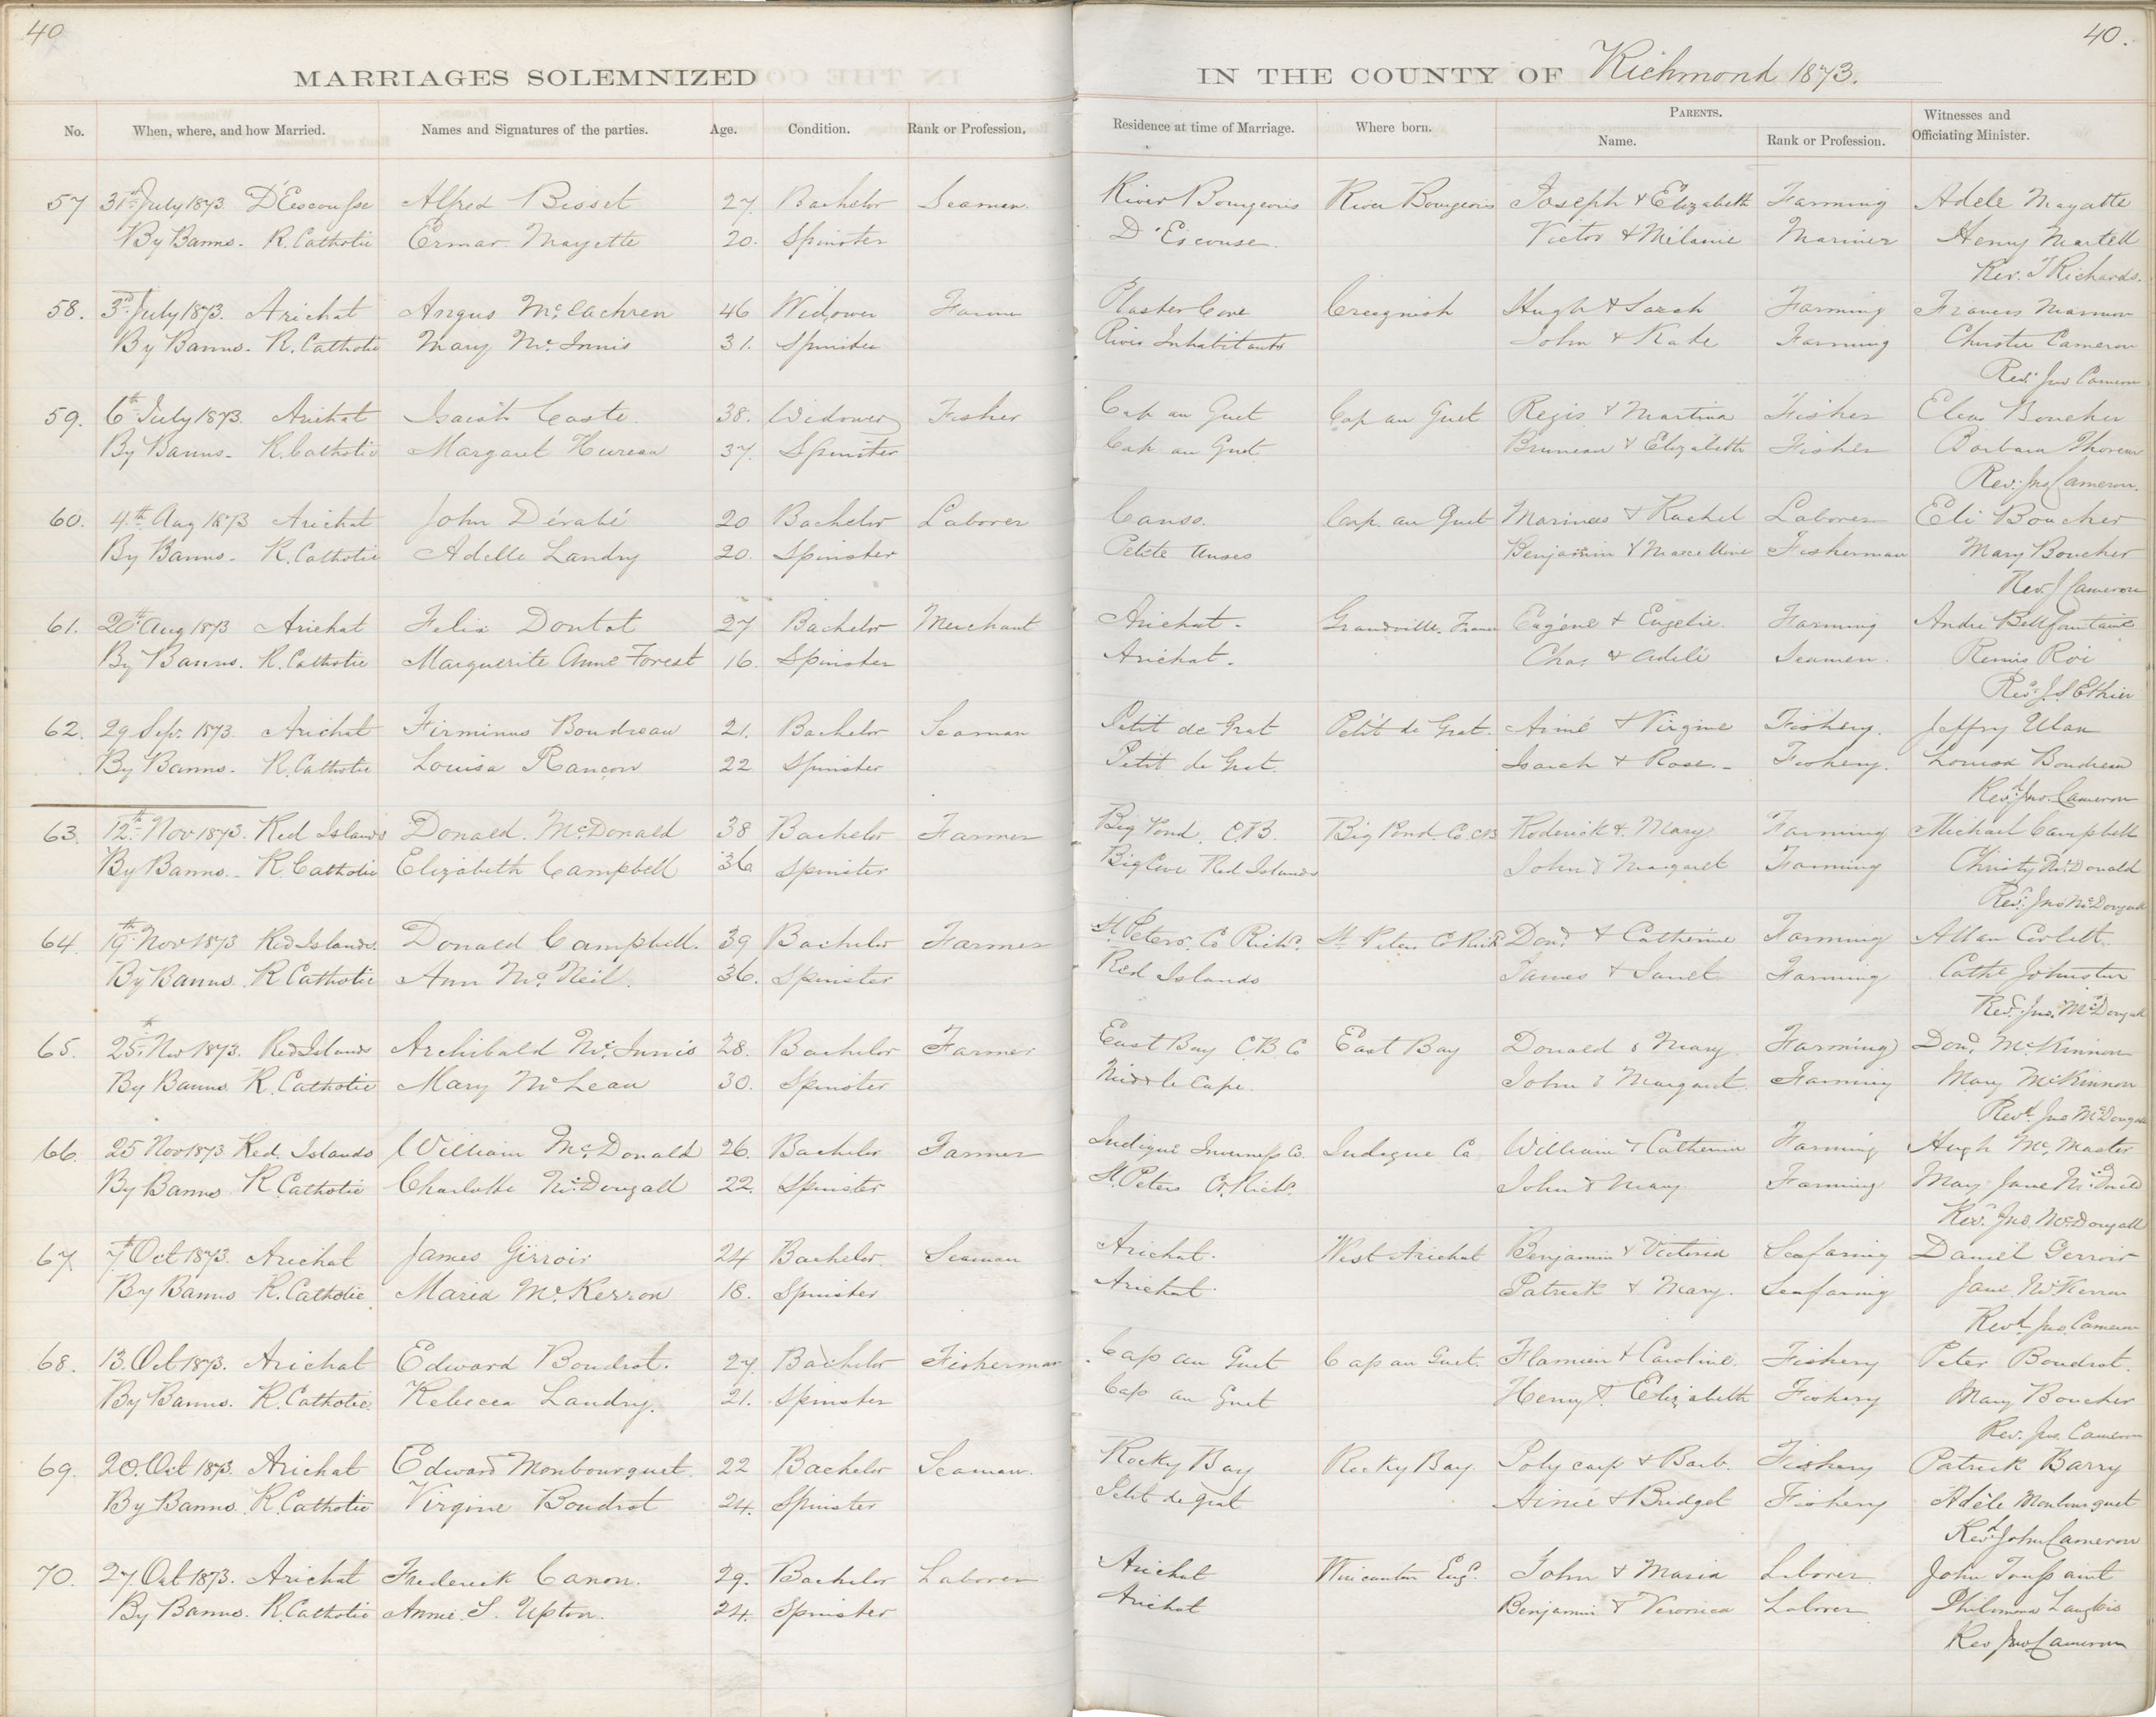 40
40.
MARRIAGES SOLEMNIZED IN THE COUNTY OF Richmond 1873.
No. When, where, and how Married. Names and Signatures of the parties. Age. Condition. Rank or Profession. Residence at time of Marriage. Where born. PARENTS. Name. Rank or Profession. Witnesses and Officiating Minister.
57 31st July 1873 D'Escousse Alfred Bisset 27. Bachelor Seaman. River Bourgeois River Bourgeois Joseph & Elizabeth Farming Adele Mayatte
By Banns. R. Catholic Ermar Mayette 20. Spinster D'Escouse. Victor & Mélanie Mariner Henry Martell
Rev. J Richards.
58. 3rd July 1873. Arichat Angus McEachren 46 Widower Farmer Plaster Cove Creignish Hugh & Sarah Farming Frances
By Banns. R. Catholic Mary McInnis 31. Spinster River Inhabitants John & Kate Farming Christie Cameron
Rev. Jno Cameron
59. 6th July 1873. Arichat Isaiah Coste 38. Widower Fisher Cap au Guet Cap au Guet Regis & Martina Fisher Boucher
By Banns. R. Catholic Margaret Hureau 37. Spinster Cap au Guet Bruneau & Elizabeth Fisher Barbara
Rev. Jno Cameron.
60. 4th Aug 1873 Arichat John Dérabé 20 Bachelor Laborer Canso. Cap au Guet & Rachel Laborer Eli Boucher
By Banns. R. Catholic Adelle Landry 20. Spinster Petite Anses Benjamin & Marcelline Fisherman Mary Boucher
Rev. J Cameron
61. 20th Aug 1873 Arichat Felix Doutot 27 Bachelor Merchant Arichat. Grandville, France Eugéne & Eugelie Farming Andre Bellfountaine
By Banns. R. Catholic Marguerite Anne Forest 16. Spinster Arichat. Chas & Adéle Seamen. Remis Roi
Rev. J. S Ethier
62. 29 Sep. 1873. Arichat Firminus Boudreau 21. Bachelor Seaman Petit de Grat Petit de Grat. Aimé & Virgine Fishery. Jeffry
By Banns. R. Catholic Louisa Rançon 22 Spinster Petit de Grat. Isaiah & Rose. Fishery. Louisa Boudreau
Rev. Jno. Cameron
63. 12th Nov 1873. Red Islands Donald McDonald 38 Bachelor Farmer Big Pond, C.B. Big Pond. Co. C.B Roderick & Mary Farming Michael Campbell
By Banns. R. Catholic Elizabeth Campbell 36 Spinster Big Cove Red Islands John & Margaret Farming Christy McDonald
Rev. Jno McDougall
64. 19th Nov 1873 Red Islands. Donald Campbell. 39 Bachelor Farmer St. Peters. Co Richd. St Peters C Richd Dond. & Catherine Farming Allan Corbett
By Banns R Catholic Ann McNeil. 36. Spinster Red Islands James & Janet Farming Cathe Johnston
Rev. Jno. McDougall
65. 25th Nov 1873. Red Islands Archibald McInnis 28. Bachelor Farmer East Bay C.B. Co East Bay Donald & Mary Farming Dond. McKinnon
By Banns R. Catholic Mary McLean 30. Spinster Middle Cape. John & Margaret. Farming Mary McKinnon
Revd. Jno McDougall
66. 25 Nov 1873 Red Islands William McDonald 26. Bachelor Farmer Judique Inverness Co. Judique Co William & Catherine Farming Hugh McMaster
By Banns R Catholic Charlotte McDougall 22. Spinster St. Peters Co. Richd. John & Mary Farming Mary Jane
Rev. Jno. McDougall
67. 7th Oct 1873. Arichat James Girroir 24 Bachelor. Seaman Arichat. West Arichat Benjamin & Victoria Seafaring Daniel Gerroir
By Banns R. Catholic Maria McKerron 18. Spinster Arichat. Patrick & Mary. Seafaring Jane McKerron
Revd. Jno. Cameron
68. 13. Oct 1873. Arichat Edward Boudrot. 27. Bachelor Fisherman Cap au Guet Cap au Guet. Flamien & Caroline. Fishery Peter Boudrot.
By Banns. R. Catholic. Rebecca Landry. 21. Spinster Cap au Guet Henry & Elizabeth Fishery Mary Boucher
Rev. Jno. Cameron
69. 20. Oct 1873. Arichat Edward Monbourquet. 22 Bachelor Seaman. Rocky Bay Rocky Bay. Polycarp & Barb. Fishery Patrick Barry
By Banns R. Catholic Virgine Boudrot 24. Spinster Petit de grat Aimée & Bridget Fishery Adèle Monbourquet
Revd John Cameron
70. 27. Oct 1873. Arichat Frederick Canon. 29. Bachelor Laborer Arichat Wincanton Engd. John & Maria Laborer John Toussaint
By Banns. R. Catholic Annie. S. Upton. 24. Spinster Arichat Benjamin & Veronica Laborer Philomena Langlois
Rev Jno Cameron